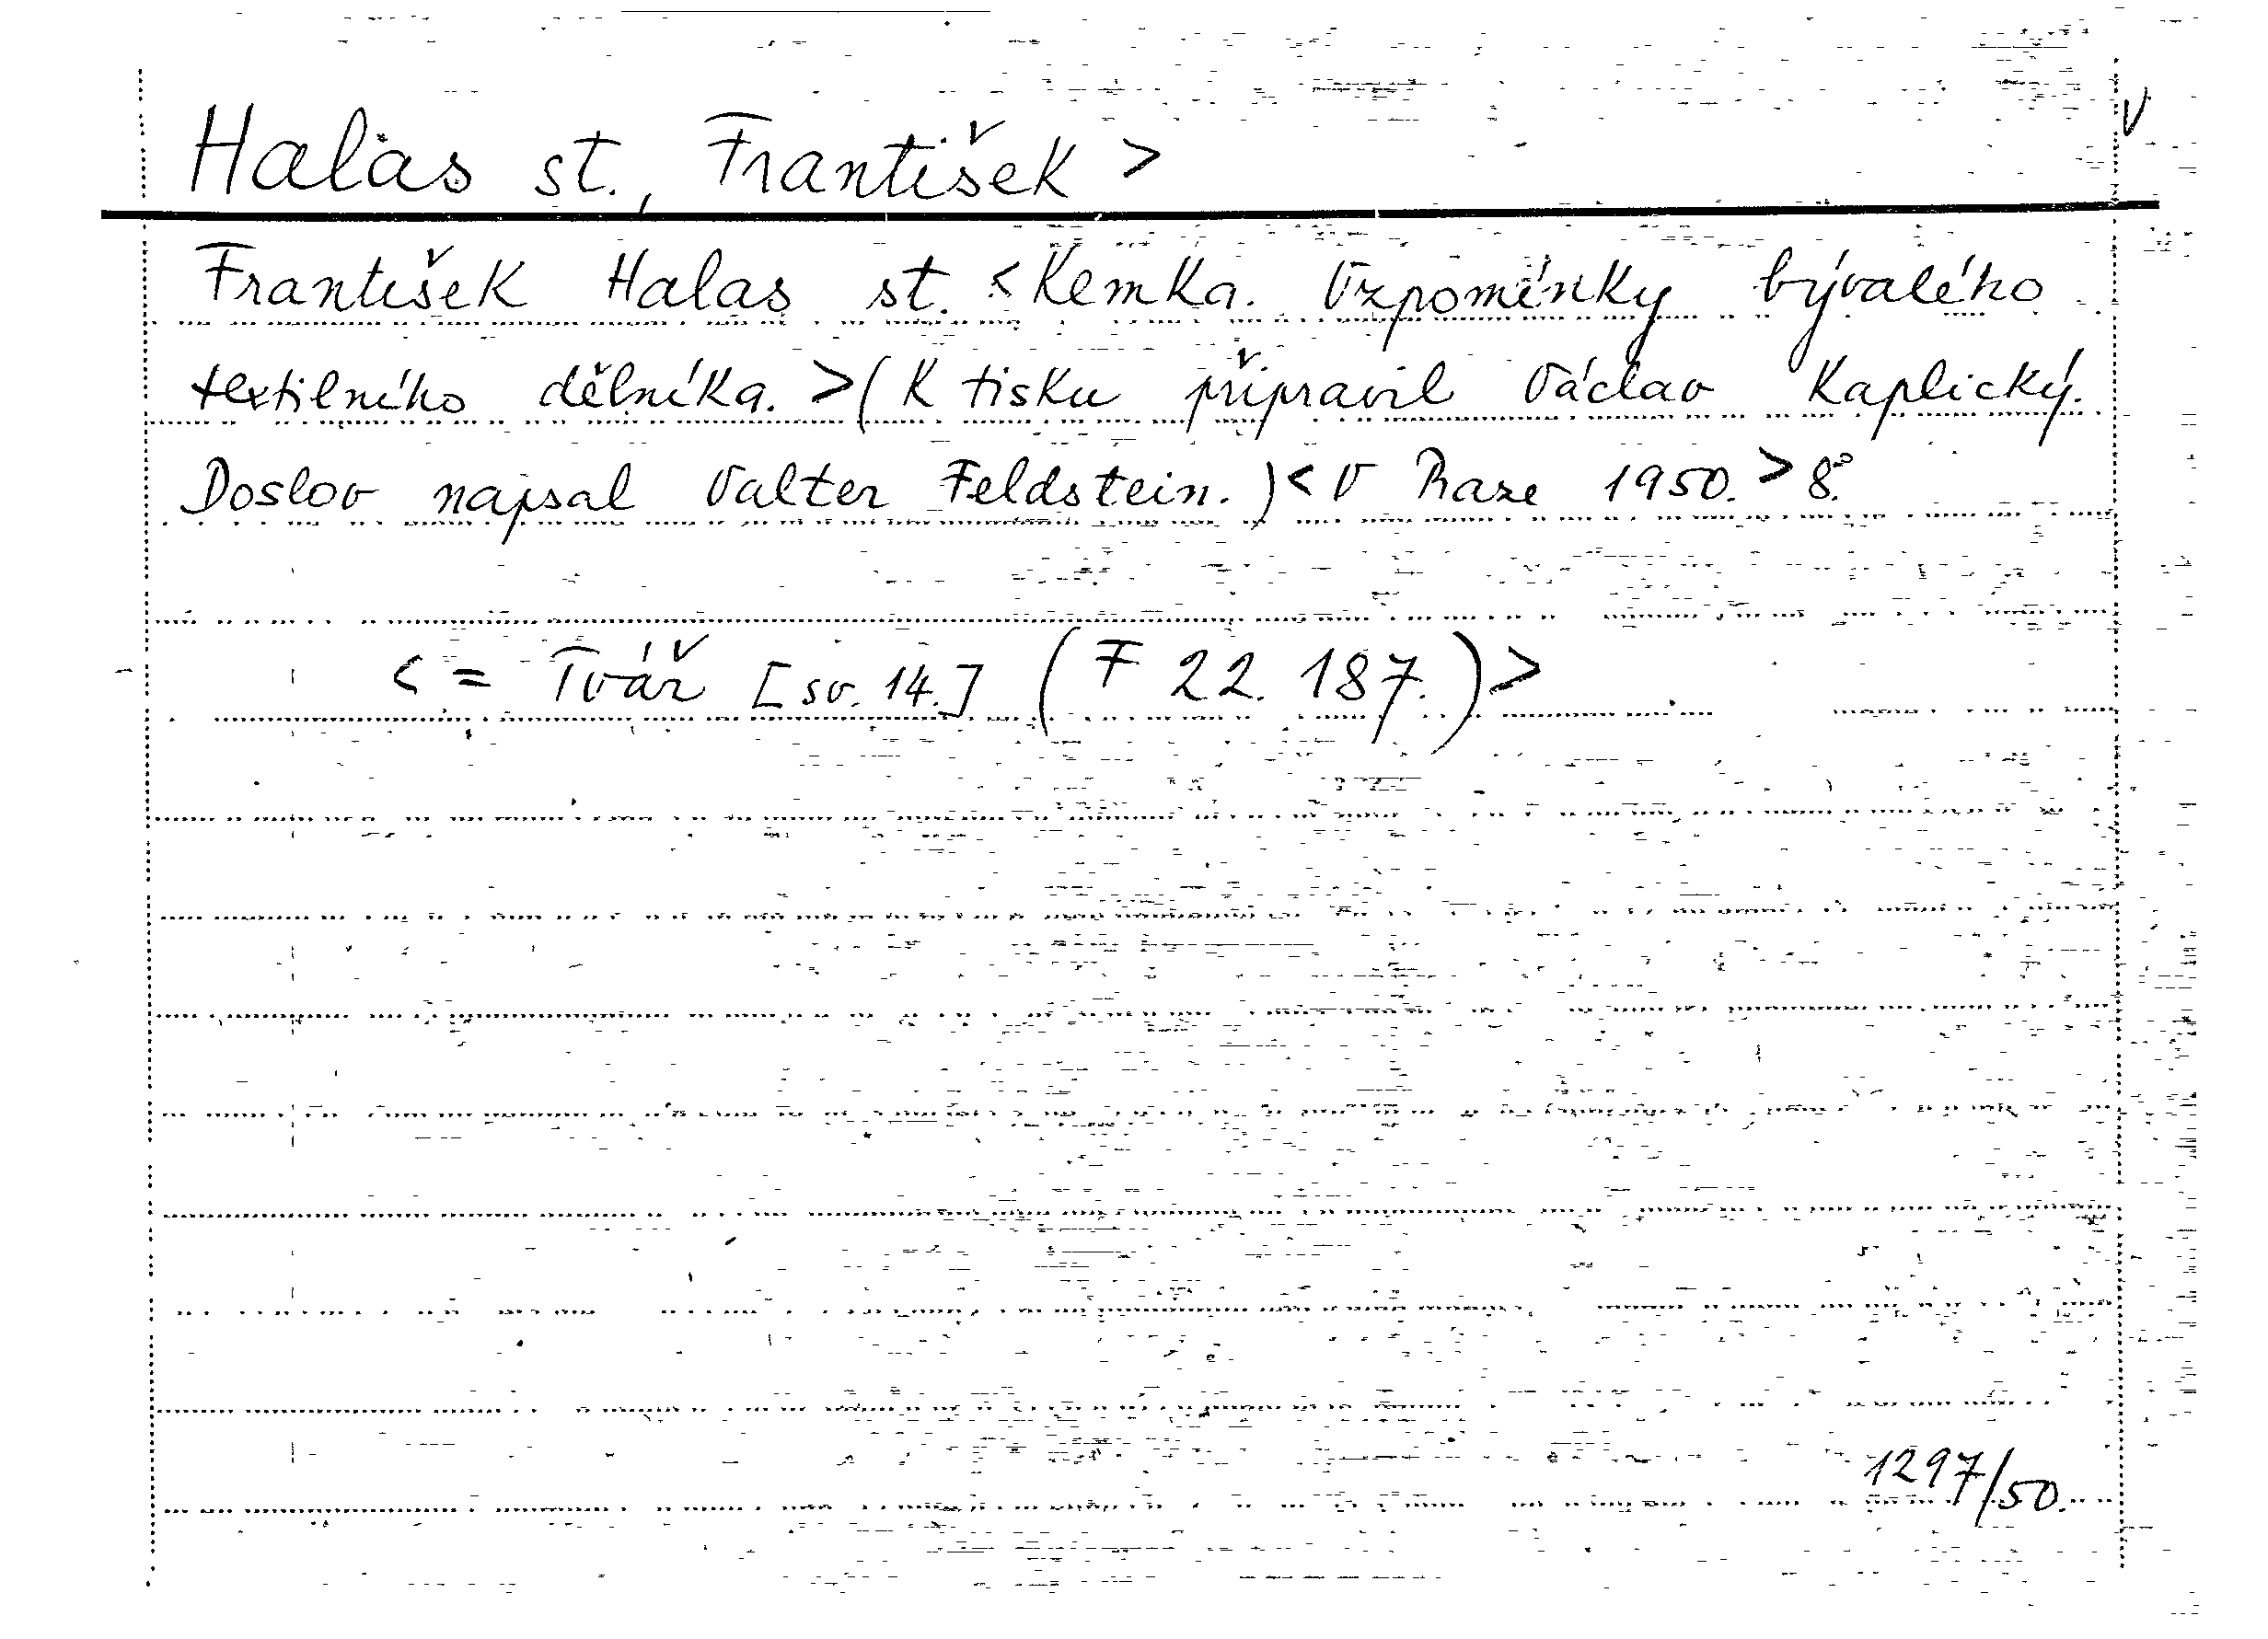 Halas st., František >
V
František Halas st. < Kemka. Vzpomínky bývalého
textilního dělníka. > ( K tisku připravil Václav Kaplický.
Doslov napsal Valter Feldstein. ) < V Praze 1950. > 8°.
< = Tvář [sv. 14.] (F 22. 187.) >
1297/50.